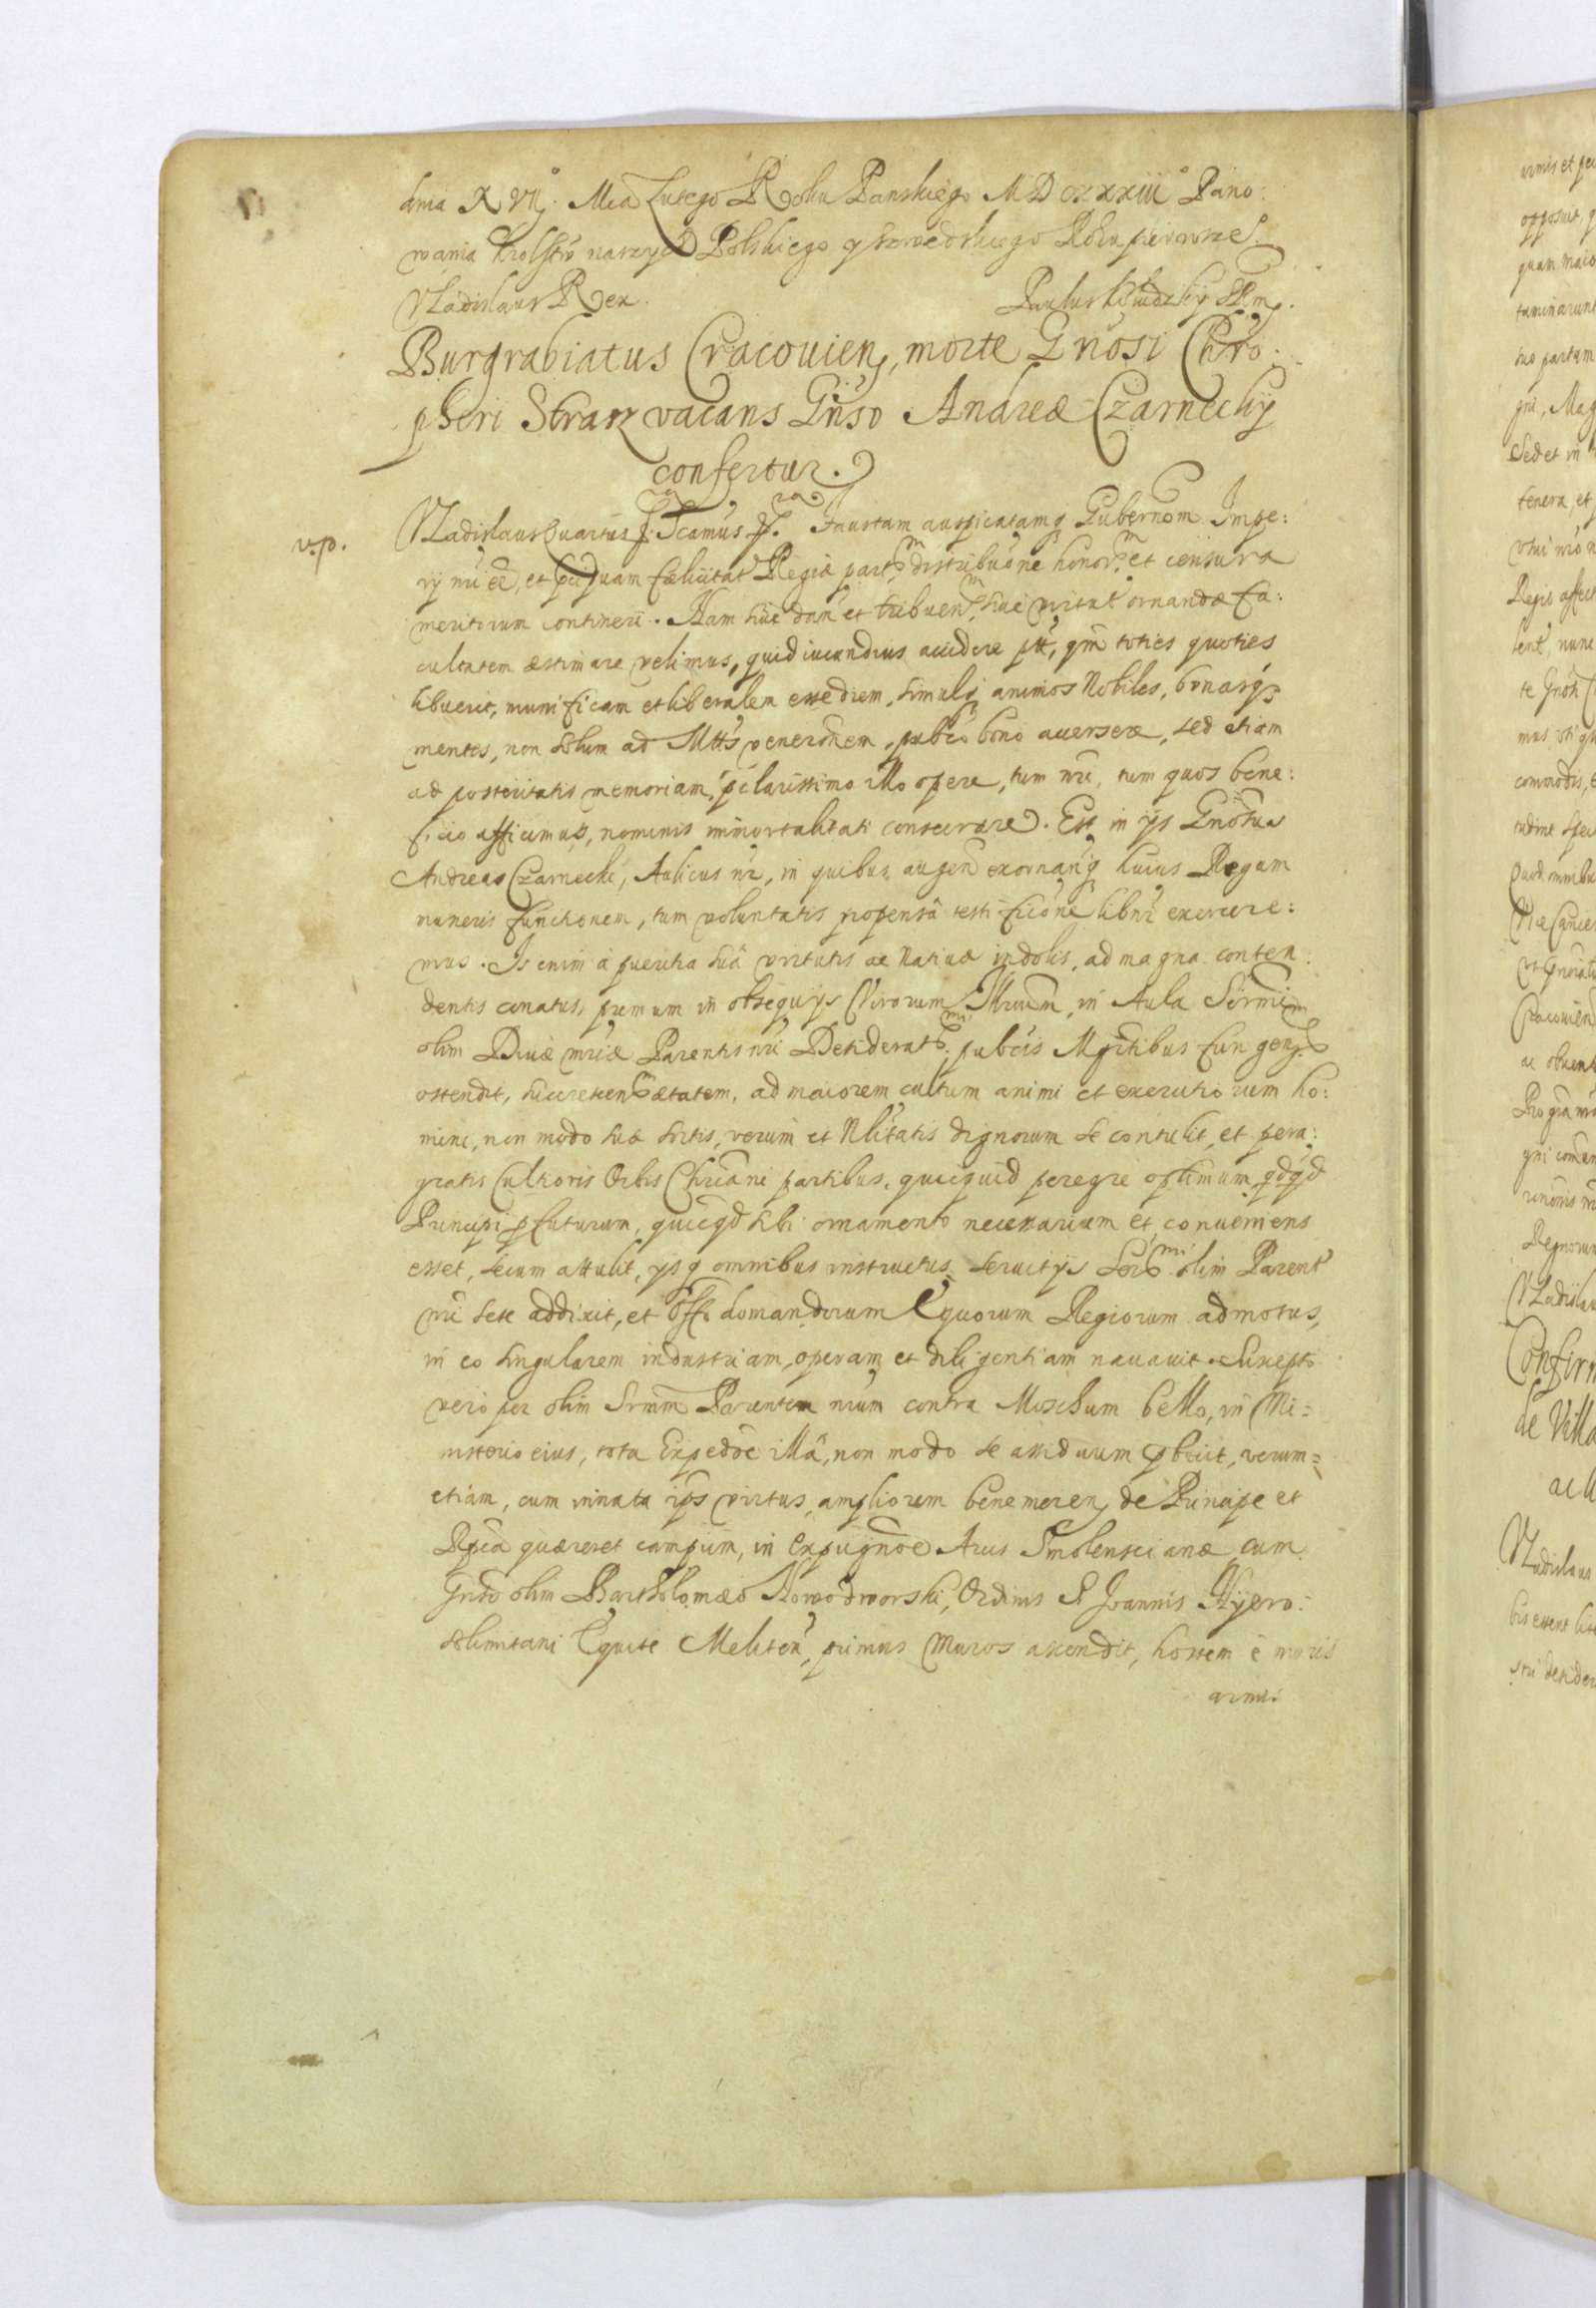 dnia XVIJ. Mca Lutego Roku Panskiego MDCXXXIII Pano:
wania Krolestw naszych Polskiego y szwedzkiego Roku pierwsze°
Vladislaus Rex. Paulus
Burgrabiatus Cracouien, morte Gnosi Chro:
pheri Strasz vacans Gnso Andreæ Czarnecky
confertur.
v.p. Vladislaus Quartus &. Scamus &. Faustam auspicatamq Gubernõm Impe:
rij nri eê, et Felicitat Regiæ part distribuõne honor et censura
meritorum contineri. Nam siue dan et tribuen, siue virtut ornandæ fa:
cultatem æstimare velimus, quid iucundius accidere ptt, qm toties quoties
libuerit, munificam et liberalem esse diem, simulq animos Nobiles, bonasq
mentes, non solum ad Mttis venerõnem, pubco bono auersere, sed etiam
ad posteritatis memoriam, pclarissimo illo opere, tum nri, tum quos bene:
ficio afficimus, nominis immortalitati consecrare. Est in ijs Gnosus
Andreas Czarnecki, Aulicus nr, in quibus augen exornanq huius Regum
muneris functionem, tum voluntatis propensâ testificõne libnr exercere:
mus. Is enim à pueritia suâ virtutis ac natiuæ indolis, ad magna conten:
dentis conatus, primum in obsequijs Virorum Illrium, in Aula Sermi
olim Diuæ mriæ Parentis nri Desiderat, pubcis Mgrtibus fungen
ostendit, succrescen ætatem, ad maiorem cultum animi et exercitiorum ho:
mine, non modo suæ sortis, verum et Nlitatis dignorum se contulit, et pera:
gratis Cultioris Orbis Chriani partibus, quicquid peregre optimum, qdqd
Principi pfuturum, quicqd sibi ornamento necessarium et conueniens
esset, secum attulit, ijsq omnibus instructus, seruitijs Sermi olim Parent
nri sese addixit, et offo domandorum Equorum Regiorum admotus,
in eo singularem industriam, operam et diligentiam nauauit. Suscepto
vero per olim Srmm Parentem nrum contra Moschum bello, in Mi=
nisterio eius, tota Expedõe illâ, non modo se assiduum pbuit, verum=
etiam, cum innata ips virtus, ampliorem bene meren de Principe et
Rpca quæreret campum, in expugnõe Arcis Smolenscianæ cum
Gnso olim Bartholomæo Nowodworski, Ordinis S Joannis Hyero:
solimitani Equite Meliten, primus Muros ascendit, hostem è muris
armis